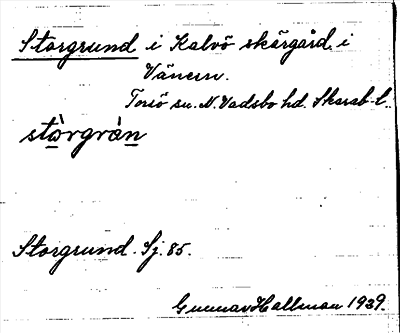 Storgrund i Kalvö skärgård i
Vänern.
Torsö sn. N. Vadsbo hd. Skarab. l.
stòrgrón
Storgrund. Sj. 85.
Gunnar Hallman 1929.